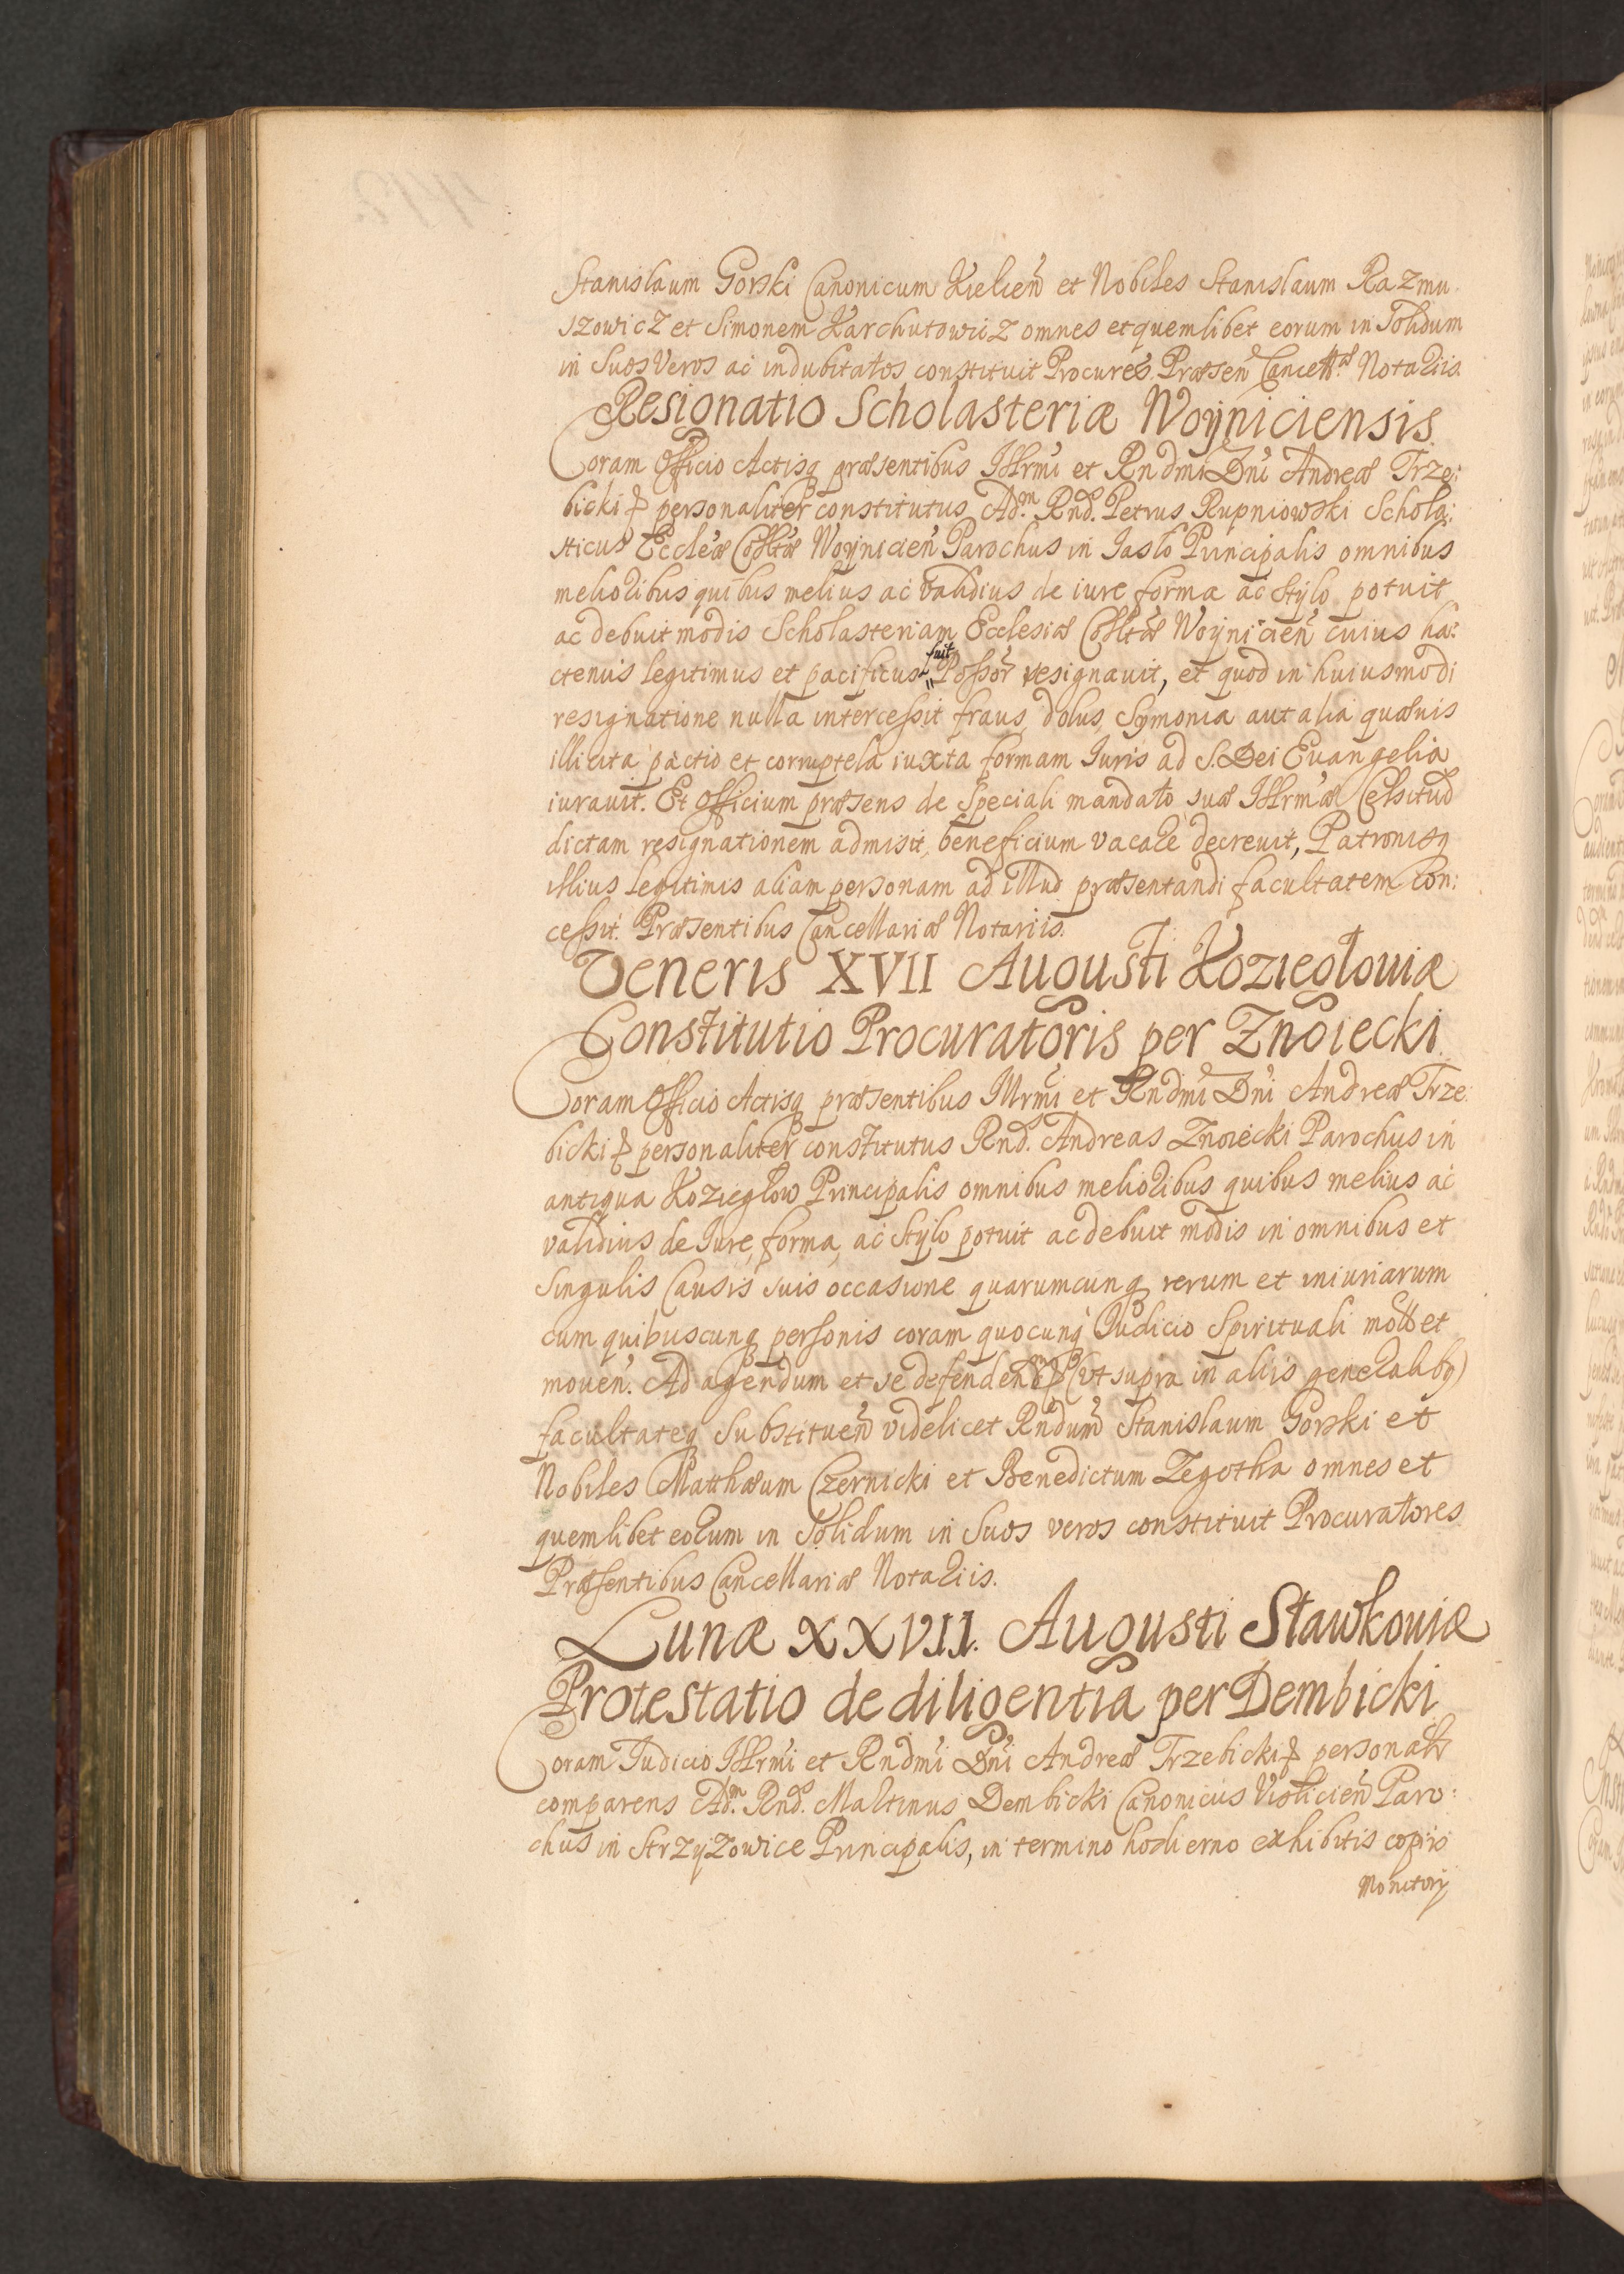 Stanislaum Gorski Canonicum Kielień et Nobiles Stanislaum Razmu:
szowicz et Simonem Karchutowicz omnes et quemlibet eorum in Solidum
in Suos Veros ac indubitatos constituit Procures. Præseń Cancellræ Notariis.
Resignatio Scholasteriæ Woyniciensis.
Coram Officio Actisq præsentibus Illrmi et Rndmi Dni Andreæ Trze:
bicki & personaliter constitutus Adm. Rnd. Petrus Rupniowski Schola:
sticus Eccleæ Colltæ Woynicień Parochus in Jaslo Principalis omnibus
melioribus quibus melius ac validius de iure forma ac Stylo potuit
ac debuit modis Scholasteriam Ecclesiæ Colltæ Woynicień cuius ha:
ctenus legitimus et pacificus fuit Possor resignauit, et quod in huiusmodi
resignatione nulla intercessit fraus, dolus, Symonia aut alia quæuis
illicita pactio et corruptela iuxta formam Iuris ad S. Dei Euangelia
iurauit. Et Officium præsens de Speciali mandato suæ Illrmæ Celsitud
dictam resignationem admisit, beneficium vacare decreuit, Patronisq
illius legitimis aliam personam ad illud præsentandi facultatem con:
cessit. Præsentibus Cancellariæ Notariis.
Veneris XVII Augusti Kozieglouiæ
Constitutio Procuratoris per Znoiecki.
Coram Officio Actisq præsentibus Illrmi et Rndmi Dni Andreæ Trze:
bicki & personaliter constitutus Rnd. Andreas Znoiecki Parochus in
antiqua Kozieglow Principalis omnibus melioribus quibus melius ac
validius de Iure, forma, ac Stylo potuit ac debuit modis in omnibus et
Singulis Causis suis occasione quarumcunq rerum et iniuriarum
cum quibuscunq personis coram quocunq Iudicio Spirituali motis et
moueń. Ad agendum et se defenden & (vt supra in aliis generalibq)
facultateq Substitueń videlicet Rndum Stanislaum Gorski et
Nobiles Matthæum Czernicki et Benedictum Zegotha omnes et
quemlibet eorum in Solidum in Suos veros constituit Procuratores.
Præsentibus Cancellariæ Notariis.
Lunæ XXVII. Augusti Stawkouiæ
Protestatio de diligentia per Dembicki.
Coram Iudicio Illrmi et Rndmi Dni Andreæ Trzebicki & personalr
comparens Adm. Rnd. Martinus Dembicki Canonicus Vislicień Paro:
chus in Strzyzowice Principalis, in termino hodierno exhibitis copiis
Monitorij